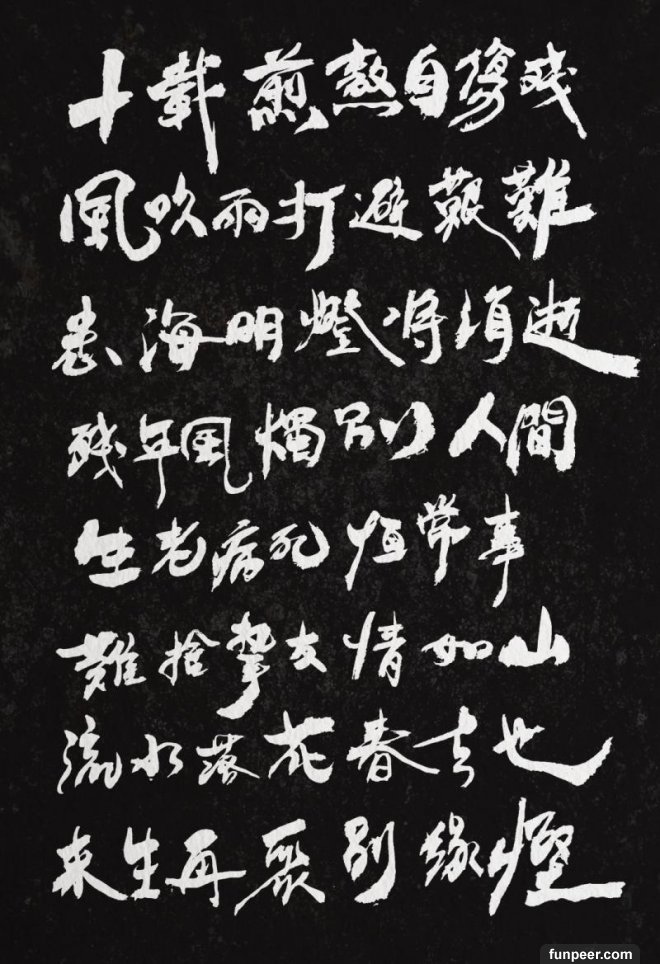 十载煎熬自傷残
風吹雨打避艱難
海明燈将須逝
残年風燭别人間
生老病死恒常事
難捨挚友情如山
流水落花春去也
來生再聚别緣慳
funpeer.com